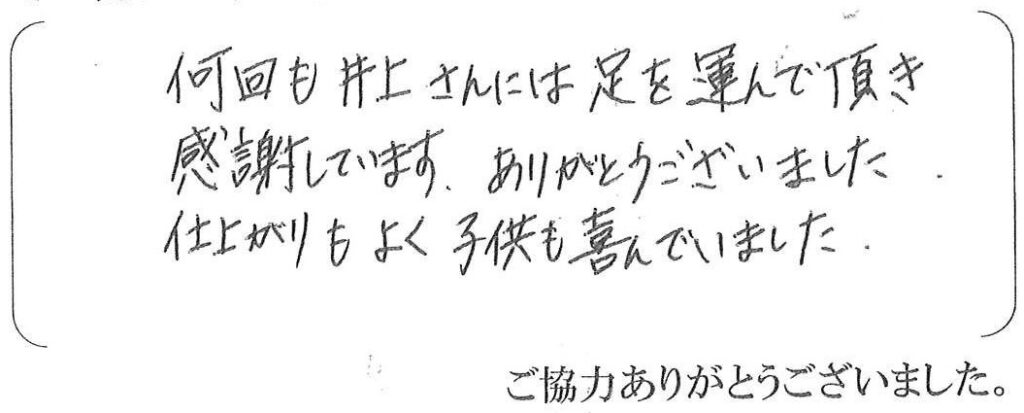 何回も井上さんには足を運んで頂き
感謝しています。ありがとうございました.
仕上がりもよく子供も喜んでいました.
ご協力ありがとうございました。